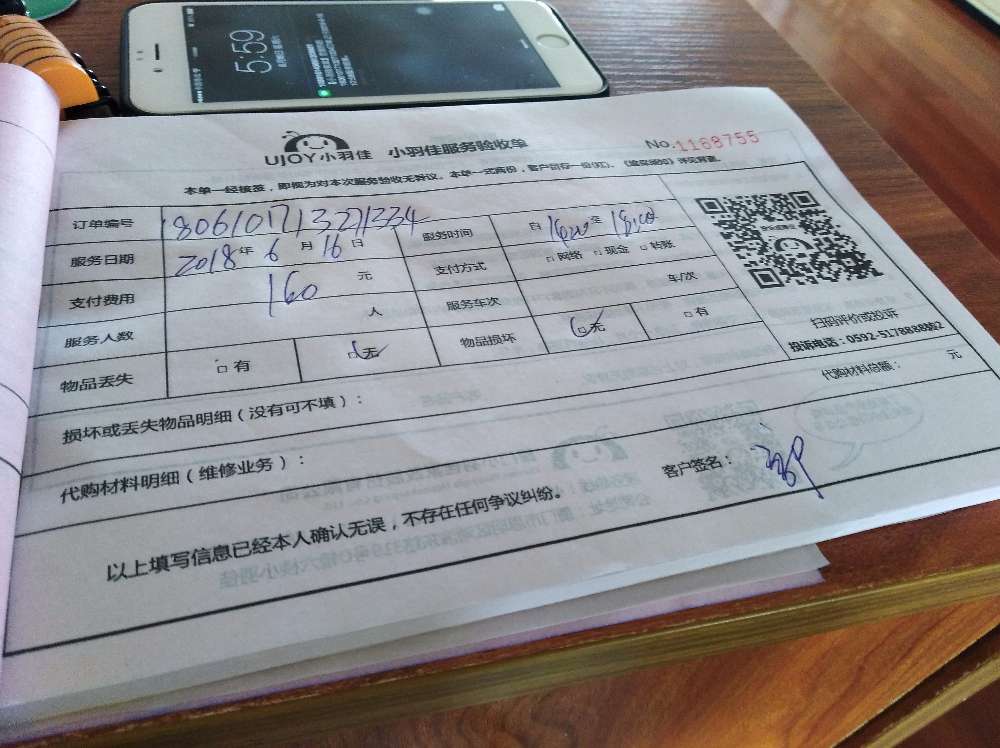 5:59
UJOY小羽佳 小羽佳服务验收单 No.1168755
本单一经接签，即视为对本次服务验收无异议。本单一式两份，客户留存一份(红)。
订单编号 180610171321334 服务时间 自 14:00 至 18:00
服务日期 2018年6月16日 支付方式 □网络 □现金 □转账
支付费用 160 元 服务车次 车/次
服务人数 人 物品损坏 □无 □有
物品丢失 □有 □无
扫码评价或投诉
损坏或丢失物品明细（没有可不填）：
代购材料总额： 元
代购材料明细（维修业务）：
客户签名：
以上填写信息已经本人确认无误，不存在任何争议纠纷。